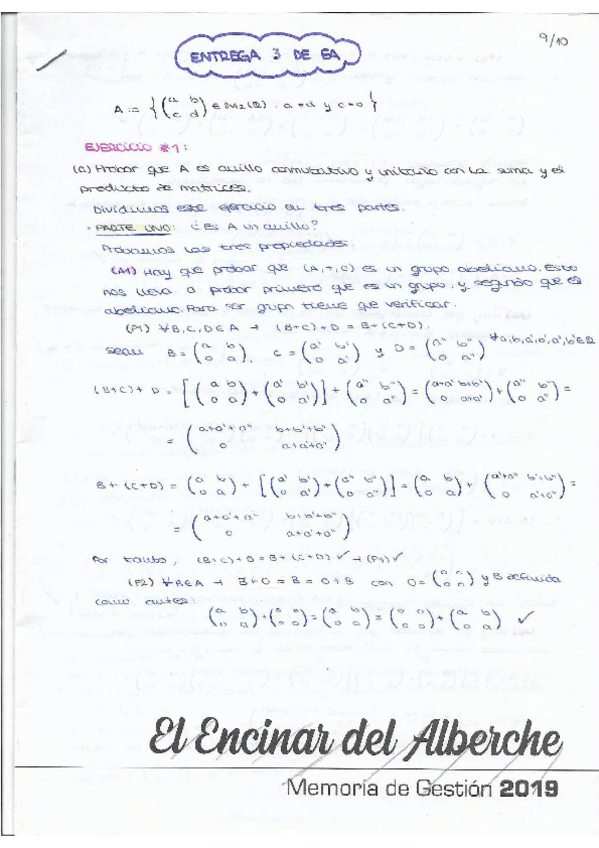 9/10
ENTREGA 3 DE EA
A := { (a b / c d) ∈ M2(Q) : a = d y c = 0 }
EJERCICIO #1:
(a) Probar que A es anillo conmutativo y unitario con la suma y el
producto de matrices.
Dividimos este ejercicio en tres partes.
· PARTE UNO: ¿Es A un anillo?
Probamos las tres propiedades:
(A1) Hay que probar que (A,+,·) es un grupo abeliano. Esto
nos lleva a probar primero que es un grupo y segundo que es
abeliano. Para ser grupo tiene que verificar:
(P1) ∀B,C,D ∈ A → (B+C)+D = B+(C+D).
sean B = (a b / 0 a), C = (a' b' / 0 a') y D = (a'' b'' / 0 a'')
(B+C)+D = [(a b / 0 a) + (a' b' / 0 a')] + (a'' b'' / 0 a'') = (a+a' b+b' / 0 a+a') + (a'' b'' / 0 a'') =
= (a+a'+a'' b+b'+b'' / 0 a+a'+a'')
B+(C+D) = (a b / 0 a) + [(a' b' / 0 a') + (a'' b'' / 0 a'')] = (a b / 0 a) + (a'+a'' b'+b'' / 0 a'+a'') =
= (a+a'+a'' b+b'+b'' / 0 a+a'+a'')
Por tanto, (B+C)+D = B+(C+D) ✓ → (P1) ✓
(P2) ∀B∈A → B+0 = B = 0+B con 0 = (0 0 / 0 0) y B definida
como antes:
(a b / 0 a) + (0 0 / 0 0) = (a b / 0 a) = (0 0 / 0 0) + (a b / 0 a) ✓
El Encinar del Alberche
Memoria de Gestión 2019